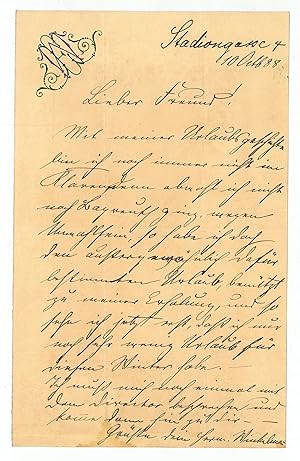 Stadiongasse 4
10 Octb 88.
Lieber Freund!
Mit meiner Urlaubsgeschichte
bin ich noch immer nicht im
Klaren, denn obwohl ich nicht
nach Bayreuth ging, wegen
Unwohlsein, so habe ich doch
den außergewöhnlich dafür
bestimmten Urlaub, benützt
zu meiner Erholung, und so
sehe ich jetzt erst, daß ich nur
noch sehr wenig Urlaub für
diesen Winter habe. —
Ich muß mich noch einmal mit
dem Director besprechen und
komme dann hin zu dir —
Grüße dem Herrn